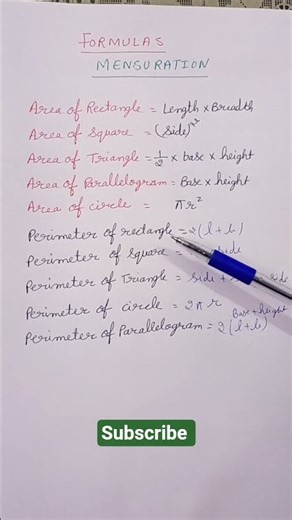 FORMULAS
MENSURATION
Area of Rectangle = Length × Breadth
Area of Square = (Side)²
Area of Triangle = 1/2 × base × height
Area of Parallelogram = Base × height
Area of circle = πr²
Perimeter of rectangle = 2(l+b)
Perimeter of Square = side
Perimeter of Triangle = side + side
Perimeter of circle = 2πr
Base + height
Perimeter of Parallelogram = 2(l+b)
Subscribe